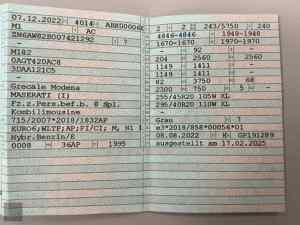 07.12.2022 4014
M1 AC
?
M182
0AGT42DAC8
3DAA121C5
-
Grecale Modena
MASERATI (I)
Fz.z.Pers.bef.b. 8 Spl.
Kombilimousine
715/2007*2018/1832AP
EURO6;WLTP;AP;PI/CI; M, N1 I
Hybr.Benzin/E
0008 36AP 1995
2 2 243/5750 240
4846-4846 1948-1948
1670-1670
- 92 -
204 2560 - 2560
1149 1411 - -
1149 1411 - -
82 3750 68
2300 750 5 -
255/45R20 105W XL
295/40R20 110W XL
-
Grau ?
e3*2018/858*00056*01
08.08.2022 H GP191289
ausgestellt am 17.02.2025